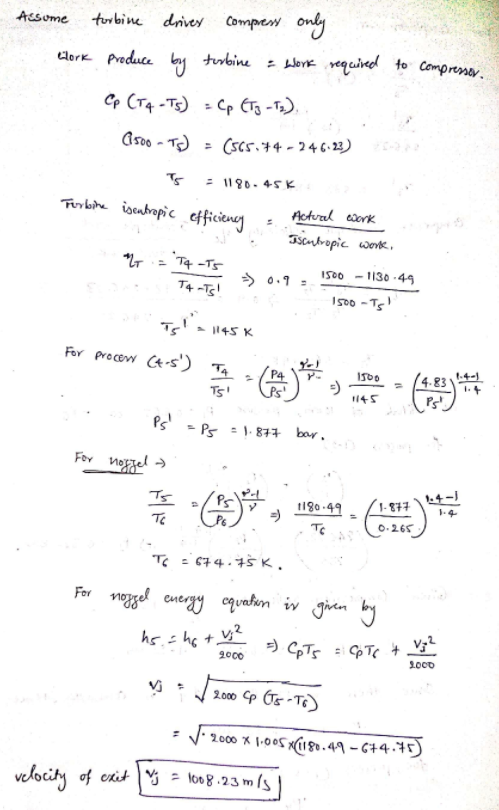 Assume turbine drives compress only
Work Produce by turbine = Work required to compressor.
Cp (T4 - T5) = Cp (T3 - T2)
(1500 - T5) = (565.74 - 246.23)
T5 = 1180.45 K
Turbine isentropic efficiency = Actual work / Isentropic work.
ηT = T4 - T5 / T4 - T5' ⇒ 0.9 = 1500 - 1130.49 / 1500 - T5'
T5' = 1145 K
For process (4-5') T4 / T5' = (P4 / P5')^(γ-1 / γ) ⇒ 1500 / 1145 = (4.83 / P5')^(1.4-1 / 1.4)
P5' = P5 = 1.877 bar.
For nozzel →
T5 / T6 = (P5 / P6)^(γ-1 / γ) ⇒ 1180.49 / T6 = (1.877 / 0.265)^(1.4-1 / 1.4)
T6 = 674.75 K.
For nozzel energy equation is given by
h5 = h6 + Vj² / 2000 ⇒ CpT5 = CpT6 + Vj² / 2000
Vj = √2000 Cp (T5 - T6)
= √2000 x 1.005 x (1180.49 - 674.75)
velocity of exit Vj = 1008.23 m/s